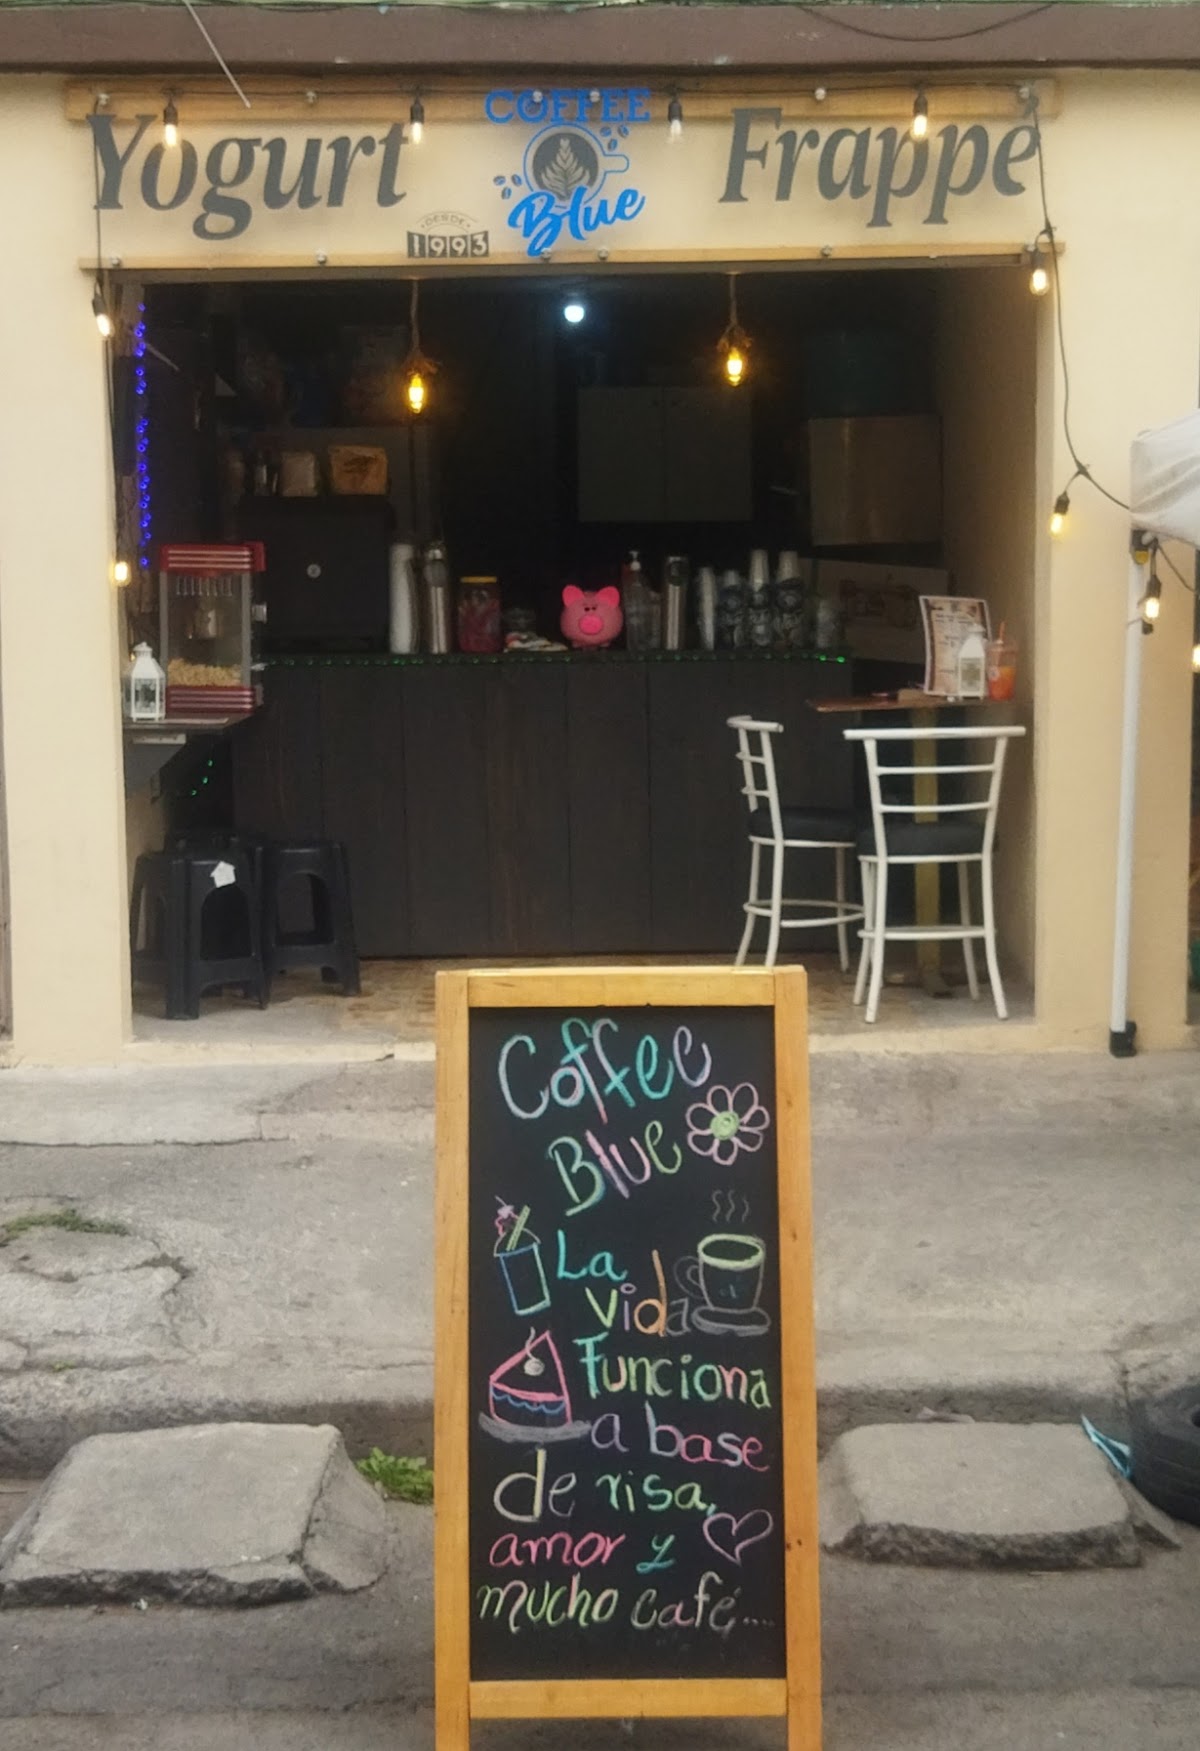 Yogurt
COFFEE
Blue
DESDE
1993
Frappé
Coffee
Blue
La
vida
Funciona
a base
de risa,
amor y
mucho café....